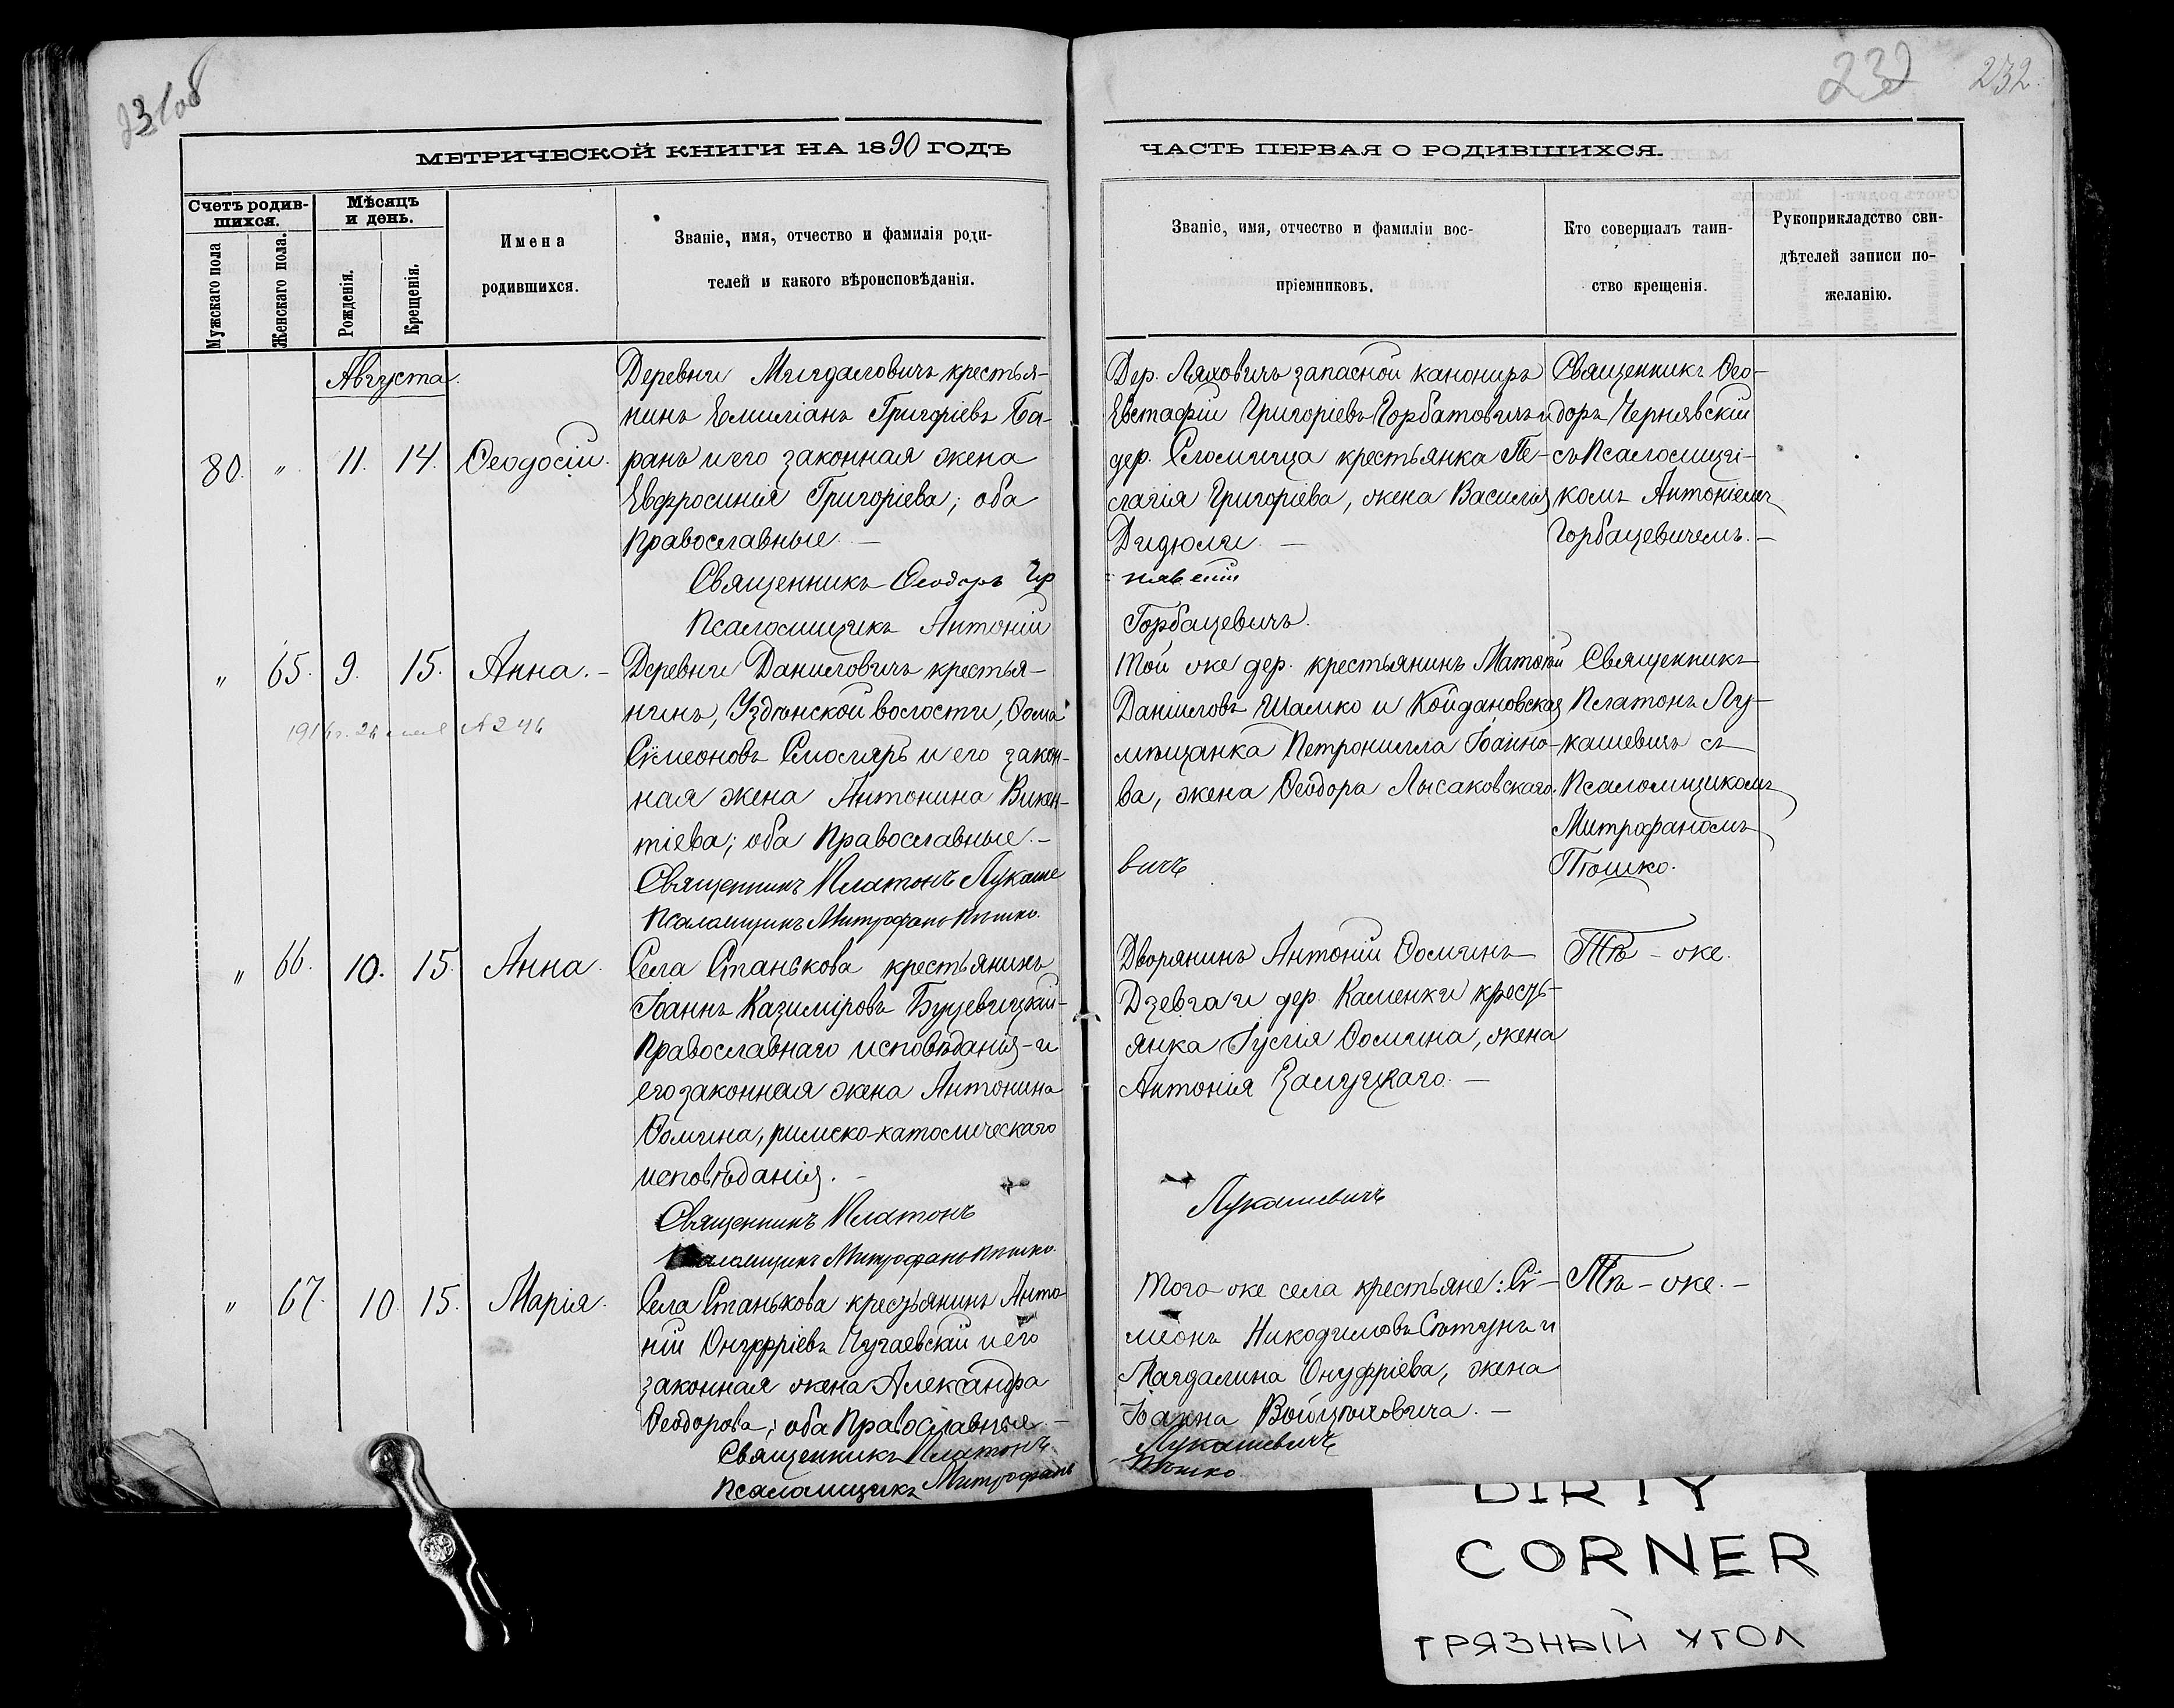 231об
232
232.
МЕТРИЧЕСКОЙ КНИГИ НА 1890 ГОДЪ
ЧАСТЬ ПЕРВАЯ О РОДИВШИХСЯ.
Счетъ родив-
шихся.
Мужскаго пола
Женскаго пола.
Мѣсяцъ
и день.
Рожденія.
Крещенія.
Имена
родившихся.
Званіе, имя, отчество и фамилія роди-
телей и какого вѣроисповѣданія.
Званіе, имя, отчество и фамиліи вос-
пріемниковъ.
Кто совершалъ таин-
ство крещенія.
Рукоприкладство сви-
дѣтелей записи по-
желанію.
Августа.
80. " 11. 14. Ѳеодосій.
Деревни Мигдаловичъ крестья-
нинъ Емиліанъ Григоріевъ Ба-
ранъ и его законная жена
Евфросинія Григоріева; оба
Православные. —
Священникъ Ѳеодоръ Чер
Псаломщикъ Антоній
Дер. Ляховичъ запасной канониръ
Евстафій Григоріевъ Горбатовичъ и
дер. Сломница крестьянка Пе-
лагія Григоріева, жена Василія
Дидюли. —
нявскій
Горбацевичъ.
Священникъ Ѳео-
доръ Чернявскій
съ Псаломщи-
комъ Антоніемъ
Горбацевичемъ. —
" 65. 9. 15. Анна. —
Деревни Даниловичъ крестья-
нинъ, Узднской волости, Ѳома
Сѵмеоновъ Смоляръ и его закон-
ная жена Антонина Викен-
тіева; оба Православные. —
Священникъ Платонъ Лукаше
Псаломщикъ Митрофанъ Пюшко.
Той же дер. крестьянинъ Матѳій
Даніиловъ Шамко и Койдановская
мѣщанка Петронилла Іоанно-
ва, жена Ѳеодора Лысаковскаго.
вичъ
Священникъ
Платонъ Лу-
кашевичъ съ
Псаломщикомъ
Митрофаномъ
Пюшко.
" 66. 10. 15. Анна.
Села Станькова крестьянинъ
Іоаннъ Казиміровъ Буцевицкій-
Православнаго исповѣданія-и
его законная жена Антонина
Ѳомина, римско-католическаго
исповѣданія. —
Священникъ Платонъ
Псаломщикъ Митрофанъ Пюшко.
Дворянинъ Антоній Ѳоминъ
Дзевга и дер. Каменки кресть-
янка Іулія Ѳомина, жена
Антонія Залуцкаго. —
Лукашевичъ
Тѣ - же.
" 67. 10. 15. Марія.
Села Станькова крестьянинъ Анто-
ній Онуфріевъ Чучаевскій и его
законная жена Александра
Ѳеодорова; оба Православные. —
Священникъ Платонъ
Псаломщикъ Митрофанъ
Того же села крестьяне: Сѵ-
меонъ Никодимовъ Сѣтунъ и
Магдалина Онуфріева, жена
Іоанна Войцѣховича. —
Лукашевичъ
Пюшко
Тѣ - же. —
DIRTY
CORNER
ГРЯЗНЫЙ УГОЛ